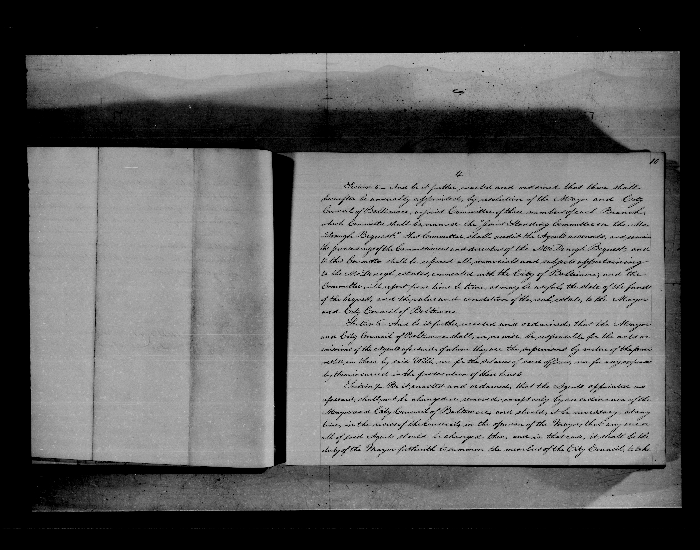 10
4
Section 5 – And be it further enacted and ordained that there shall
hereafter be annually appointed, by resolution of the Mayor and City
Council of Baltimore, a joint Committee of three members of each Branch,
which Committee shall be named the "Joint Standing Committee on the Mc
Donogh Bequest." This Committee shall audit the Agents accounts, and examine
the proceedings of the Commissioners and directors of the McDonogh Bequest; and
to this Committee shall be referred all memorials and subjects appertaining
to the McDonogh estates, connected with the City of Baltimore; and the
Committee will report from time to time, as may be useful, the state of the funds
of the bequest, and the value and condition of the real estate, to the Mayor
and City Council of Baltimore.
Section 6 – And be it further enacted and ordained, that the Mayor
and City Council of Baltimore shall in no wise be responsible for the acts or
omissions of the Agents
by them incurred in the prosecution of their trust.
Section 7 – Be it enacted and ordained, that the Agents appointed as
aforesaid, shall not be changed or removed, except only by an ordinance of the
Mayor and City Council of Baltimore; and should it be necessary, at any
time, in the recess of the Council, in the opinion of the Mayor, that any one or
all of said Agents should be changed, then, and in that case, it shall be the
duty of the Mayor forthwith to summon the members of the City Council, to take